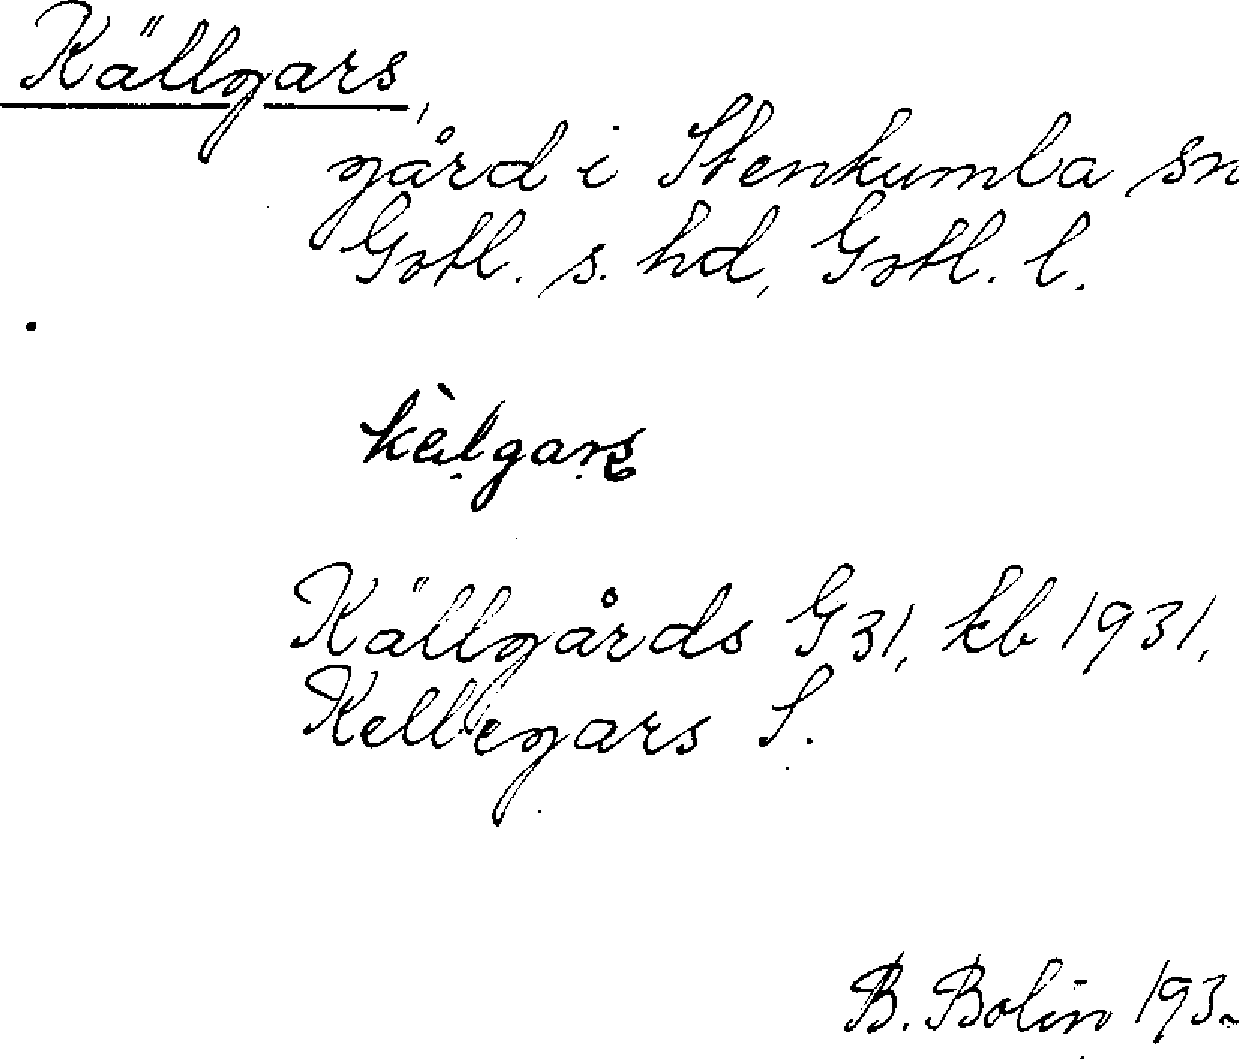 Källgars,
gård i Stenkumla sn
Gotl. s. hd, Gotl. l.
kèlgars
Källgårds G31, kb 1931,
Kellegars S.
B. Bolin 193